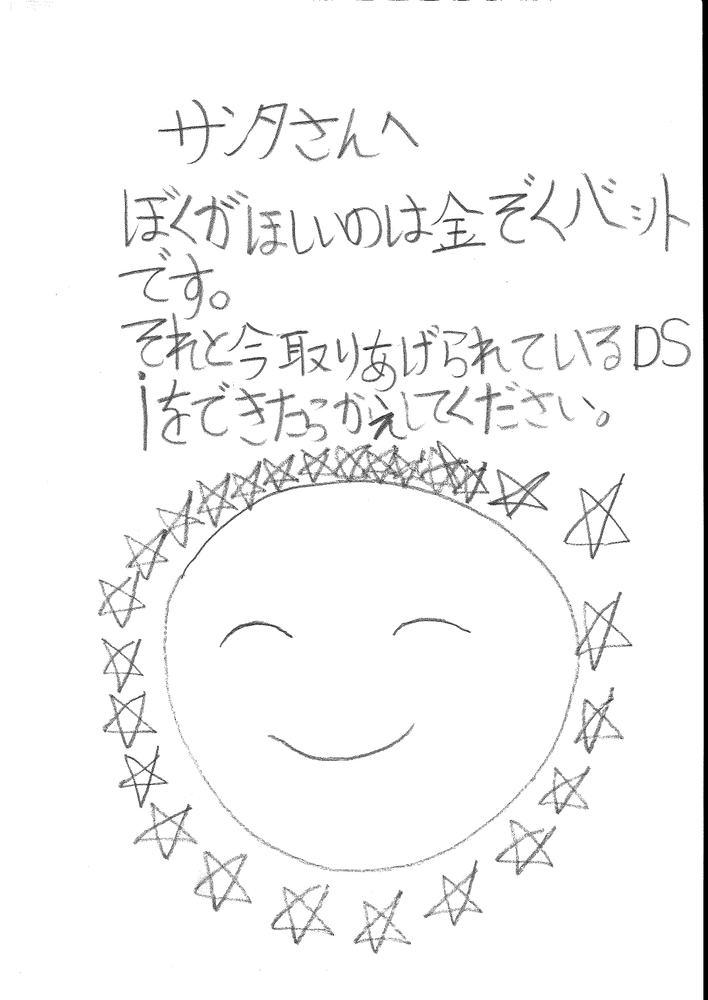 サンタさんへ
ぼくがほしいのは金ぞくバット
です。
それと今取りあげられているDS
iをできたらかえしてください。